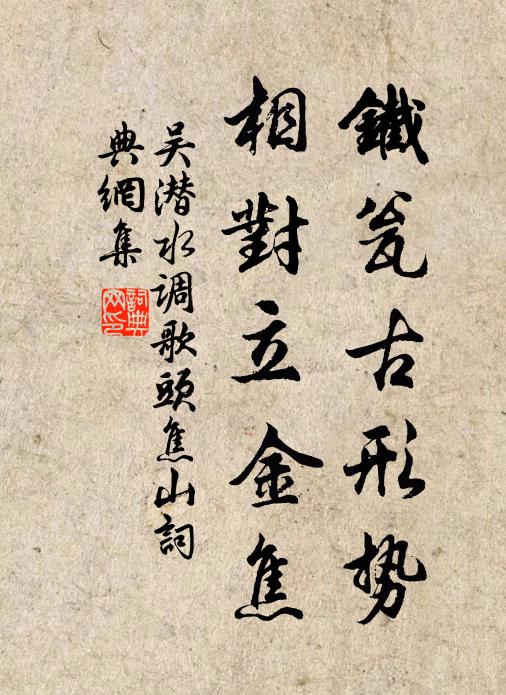 鐵瓮古形勢
相對立金焦
吴潜水调歌頭焦山詞
典網集
詞典
网印